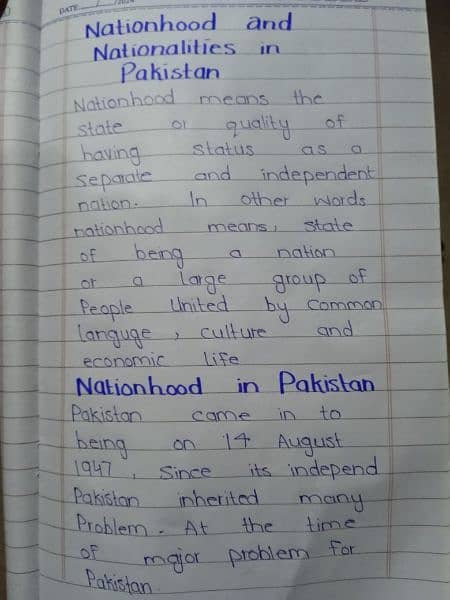 DATE
Nationhood and
Nationalities in
Pakistan
Nationhood means the
state or quality of
having status as a
separate and independent
nation. In other words
nationhood means, state
of being a nation
or a large group of
People United by common
languge , culture and
economic life
Nationhood in Pakistan
Pakistan came in to
being on 14 August
1947 , Since its independ
Pakistan inherited many
Problem. At the time
of major problem for
Pakistan.